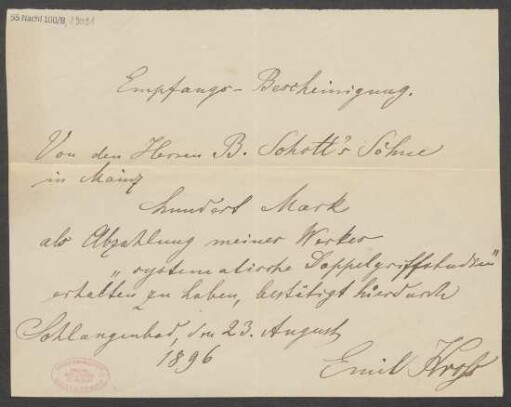 55 Nachl 100/B,
Empfangs-Bescheinigung.
Von den Herren B. Schott's Söhne
in Mainz
hundert Mark
als Abzahlung meiner Werkes
„systematische Doppelgriffstudien"
erhalten zu haben, bestätigt hierdurch
Schlangenbad, den 23. August
1896
Emil Kross